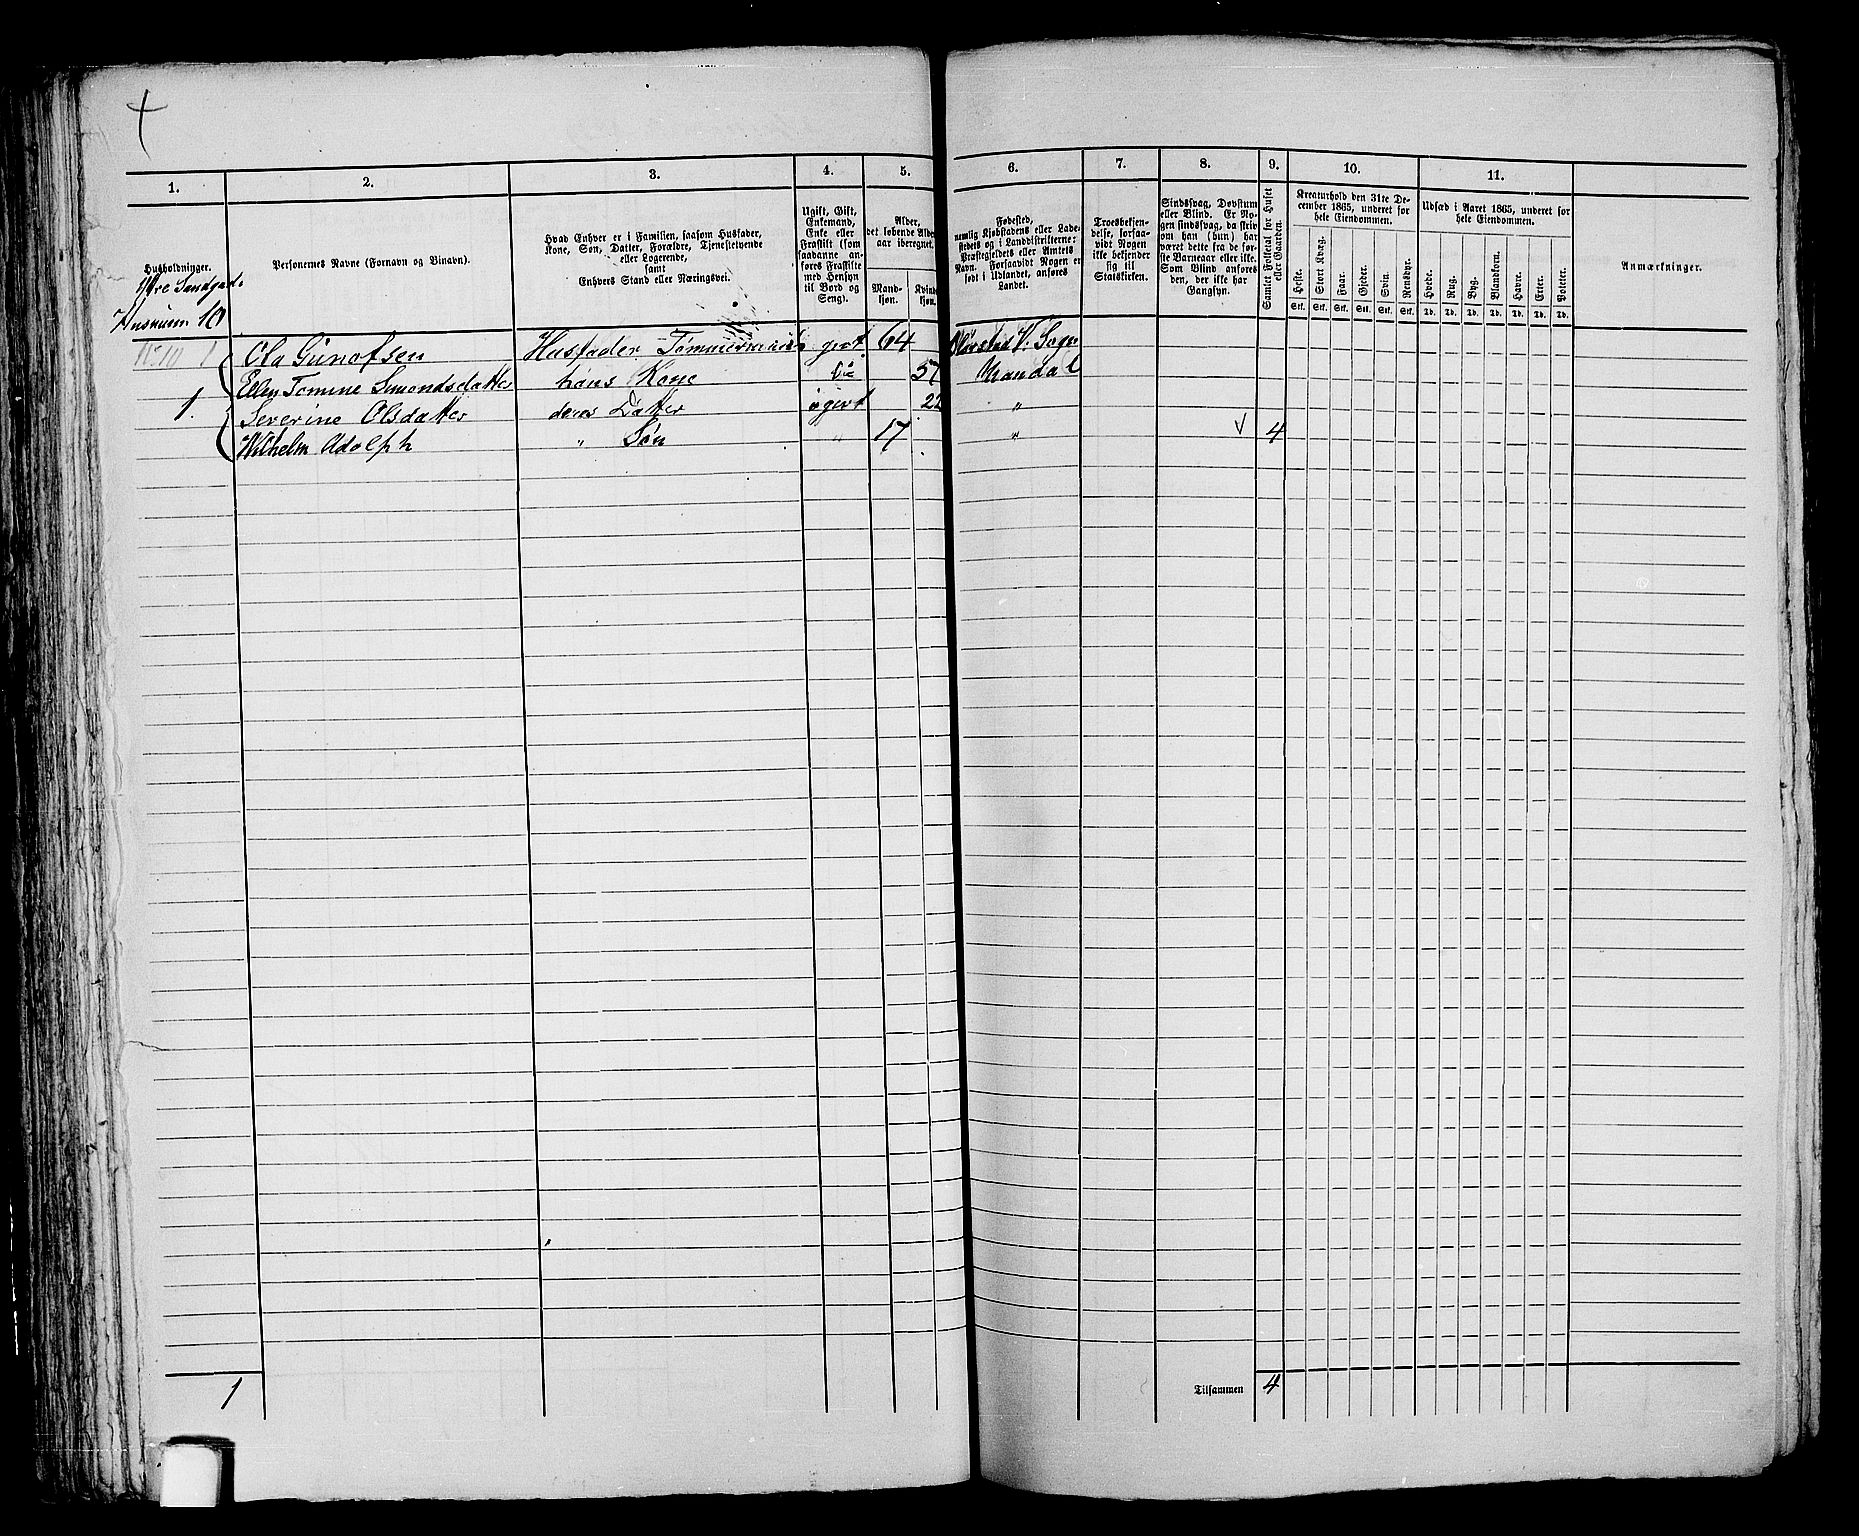 1. 2. 3. 4. 5. 6. 7. 8. 9. 10. 11.
Husholdninger.
Øvre Sandgad.
Husnum 10
Personernes Navne (Fornavn og Binavn).
Hvad Enhver er i Familien, saasom Husfader,
Kone, Søn, Datter, Forældre, Tjenestetyende
eller Logerende,
samt
Enhvers Stand eller Næringsvei.
Ugift, Gift,
Enkemand,
Enke eller
Fraskilt (som
saadanne an-
føres Fraskilte
med Hensyn
til Bord og
Seng).
Alder,
det løbende Alders-
aar iberegnet.
Mand-
kjøn.
Kvinde-
kjøn.
Fødested,
nemlig Kjøbstadens eller Lade-
stedets og i Landdistrikterne:
Præstegjeldets eller Amtets
Navn. Forsaavidt Nogen er
født i Udlandet, anføres
Landet.
Troesbekjen-
delse, forsaa-
vidt Nogen
ikke bekjender
sig til
Statskirken.
Sindssvag, Døvstum
eller Blind. Er No-
gen sindssvag, da skriv
om han (hun) har
været dette fra de før-
ste Barneaar eller ikke.
Som Blind anføres
den, der ikke har
Gangsyn.
Samlet Folketal for Huset
eller Gaarden.
Kreaturhold den 31te De-
cember 1865, underet for
hele Eiendommen.
Heste. Stort Kvæg. Faar. Gjeder. Svin. Rensdyr.
Stk. Stk. Stk. Stk. Stk. Stk.
Udsæd i Aaret 1865, underet for
hele Eiendommen.
Hvede. Rug. Byg. Blandkorn. Havre. Erter. Poteter.
Td. Td. Td. Td. Td. Td. Td.
Anmærkninger.
No 10 1 Ola Gunofsen Husfader Tømmermand givt 64 V. Sogn
Ellen Tomine Simondsdatter hans Kone do 57 Mandal
1. Severine Olsdatter deres Datter ugivt 22 "
Wilhelm Adolph " Søn " 17 " √ 4
1 Tilsammen 4